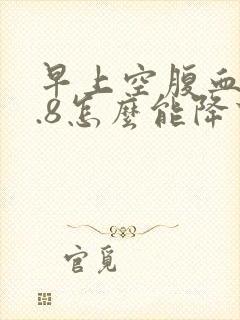 早上空腹血
.8怎麼能降
官覓